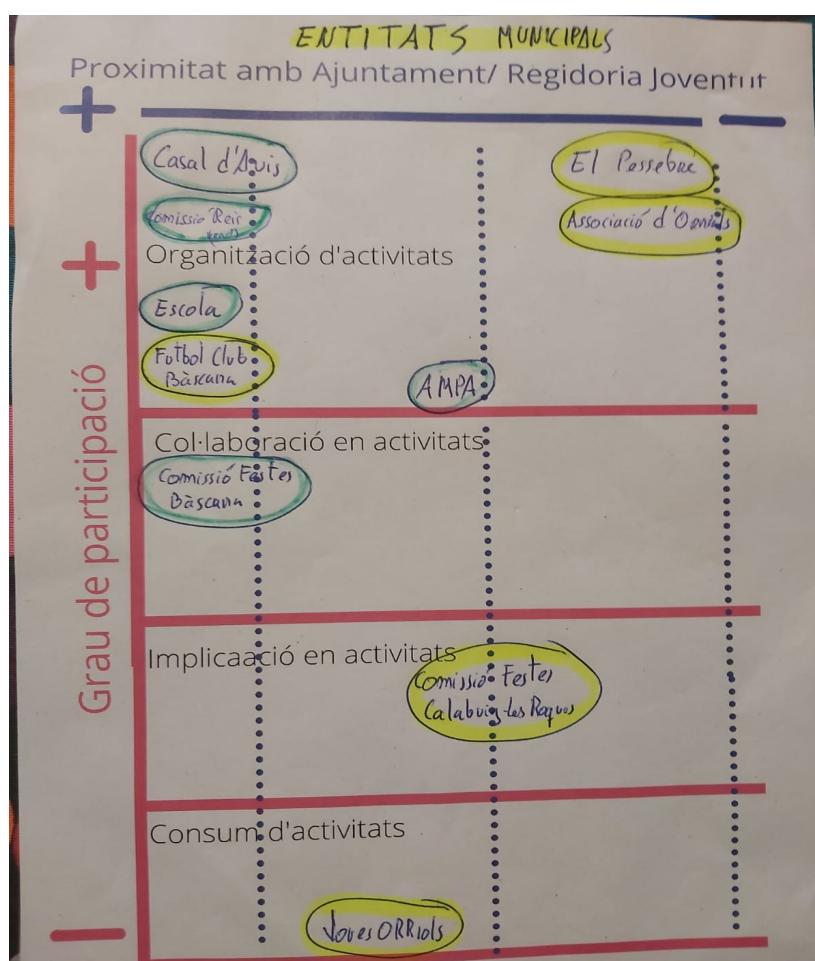 ENTITATS MUNICIPALS
Proximitat amb Ajuntament/ Regidoria Joventut
+ —
Casal d'Avis
El Pessebre
Comissió Reis
Associació d'
+
Organització d'activitats
Escola
Futbol Club
Bàscara
AMPA
Grau de participació
Col·laboració en activitats
Comissió Festes
Bàscara
Implicaació en activitats
Comissió Festes
Calabuig-les
Consum d'activitats
Joves ORRiols
—